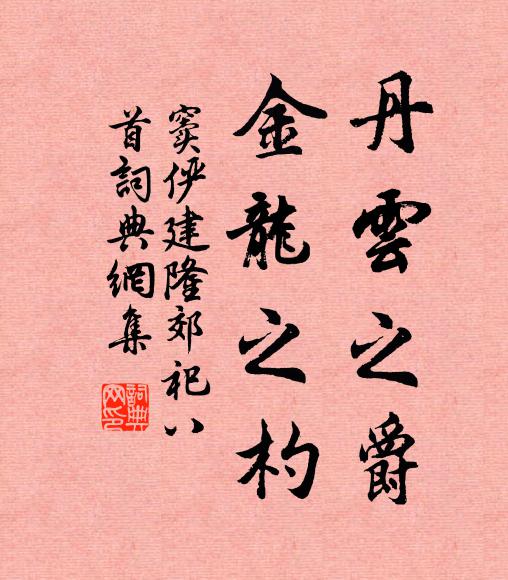 丹雲之爵
金龍之杓
竇俨建隆郊祀八
首詞典網集
詞典網印